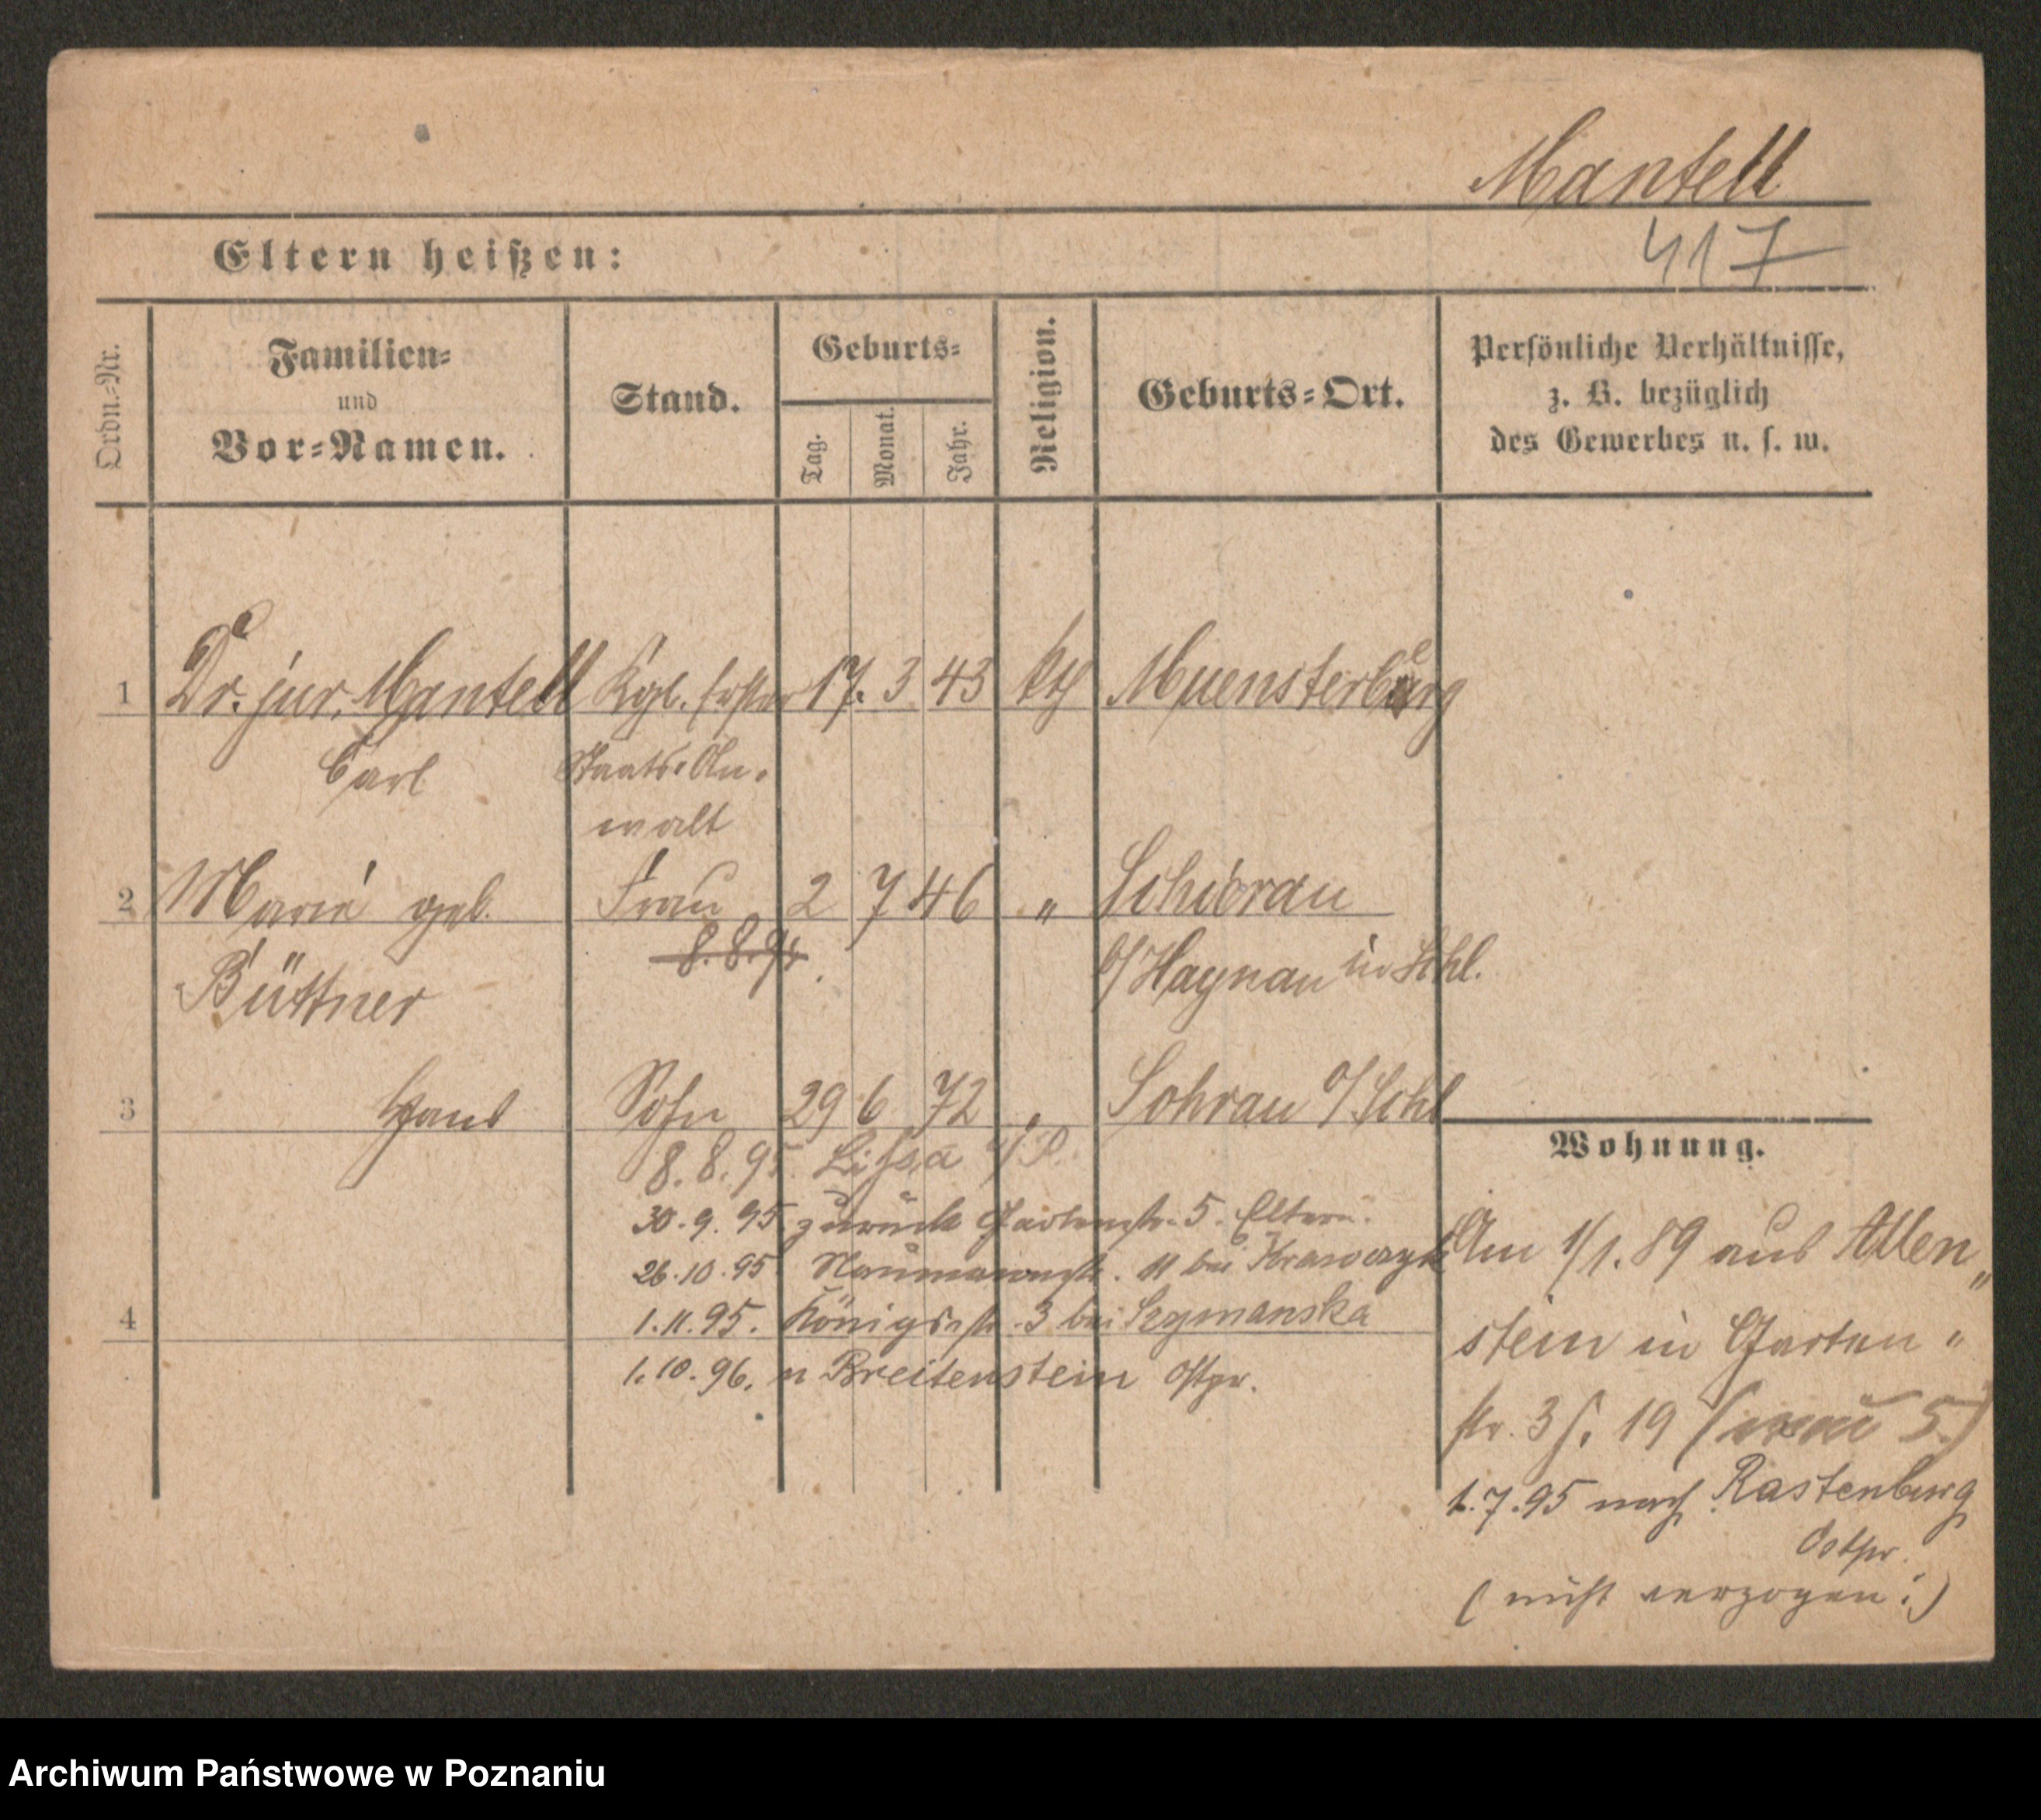 Mantell
417
Eltern heißen:
Ordn.=Nr.
Familien=
und
Vor=Namen.
Stand.
Geburts=
Tag.
Monat.
Jahr.
Religion.
Geburts=Ort.
Persönliche Verhältnisse,
z. B. bezüglich
des Gewerbes u. s. w.
1 Dr. jur. Mantell Kgl. Erster 17. 3 43 kth Muensterberg
Carl Staats-An-
walt
2 Marie geb. Frau 2 7 46 " Schierau
8.8.95
Büttner o/Haynau in Schl.
3 Hans Sohn 29 6 72 " Sohrau o/Schl
8.8.95. Lissa i/P.
30.9.95 zurück Gartenstr. 5. Eltern.
26.10.95 Naumannstr. 11 bei Krawczyk
4 1.11.95. Königsstr. 3 bei Szymanska
1.10.96. n Breitenstein Ostpr.
Wohnung.
Am 1/1.89 aus Allen„
stein in Garten "
str. 3 f. 19 (neu 5.)
1.7.95 nach Rastenburg
Ostpr.
( nicht verzogen :)
Archiwum Państwowe w Poznaniu